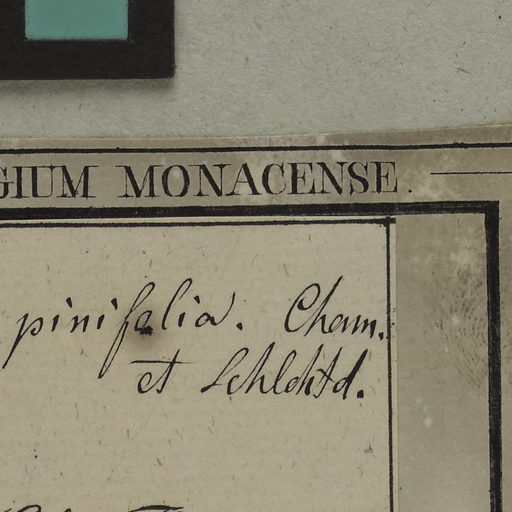 GIUM MONACENSE.
pinifolia. Cham.
et Schlchtd.